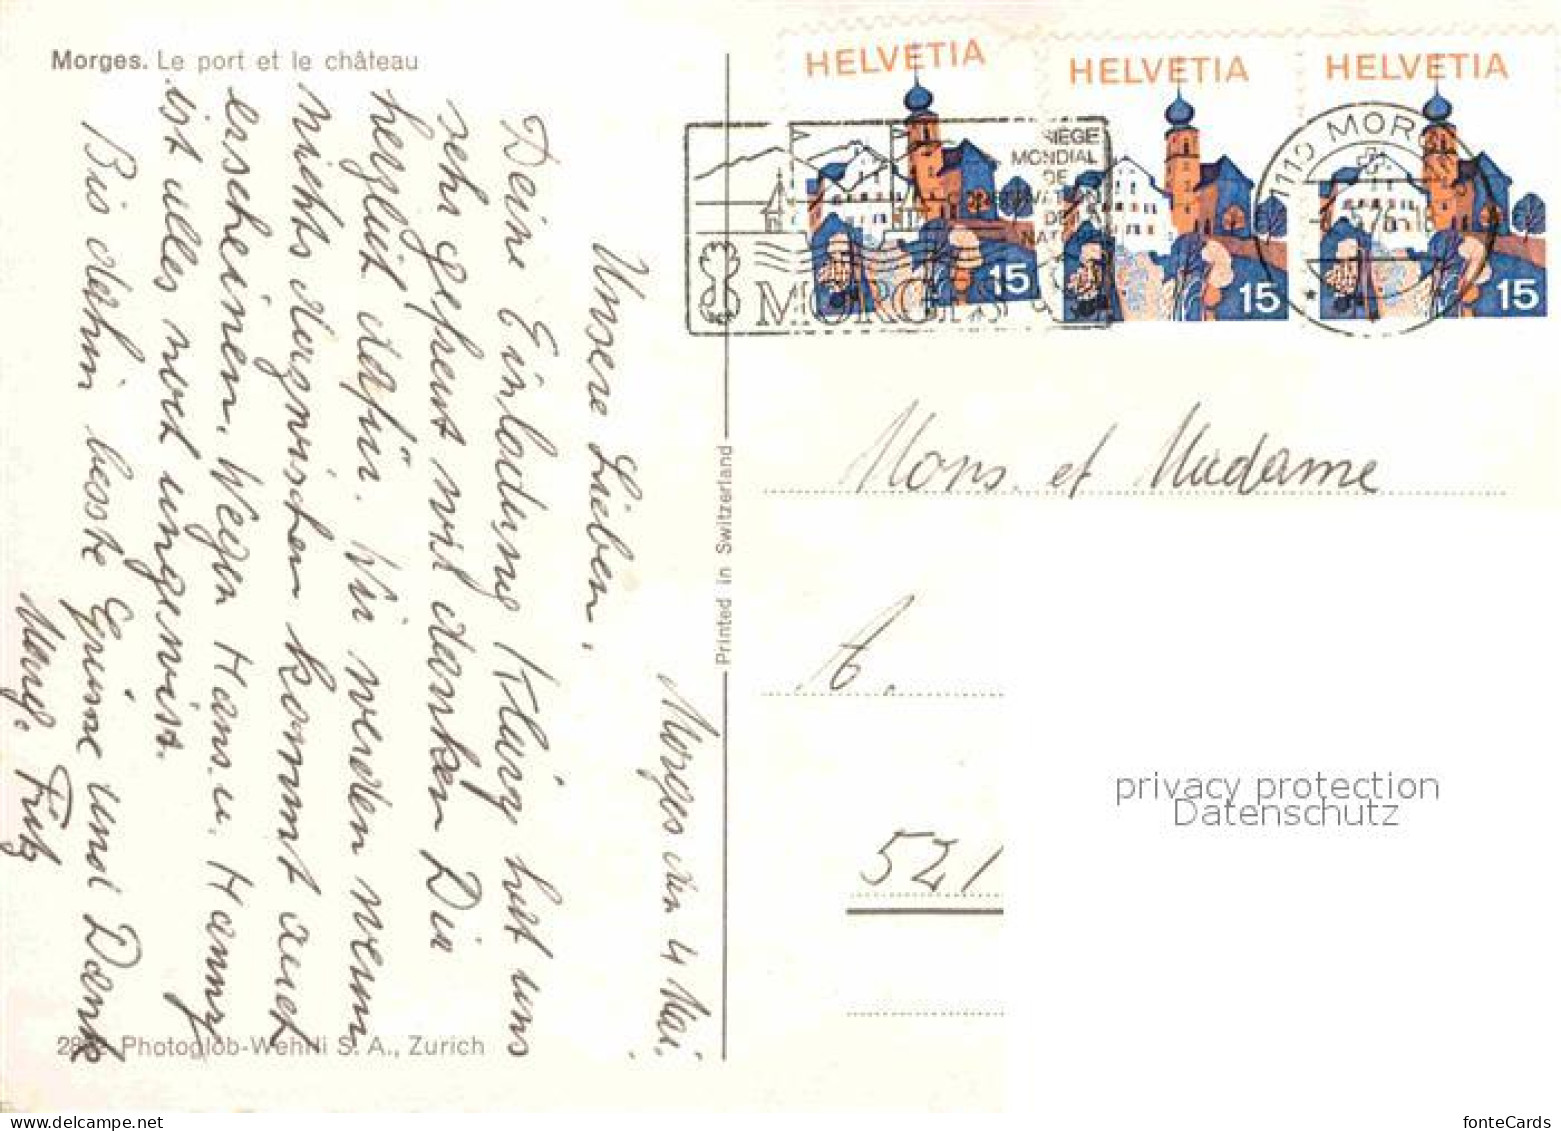 Morges. Le port et le château
HELVETIA
15
HELVETIA
15
HELVETIA
15
SIÈGE
MONDIAL
DE
DE LA
NATURE
MORGES
1110 MORGES
Morges den 4 Mai.
Unsere Lieben,
Deine Einladung Kläry hat uns
sehr gefreut wir danken Dir
herzlich dafür. Wir werden wenn
nichts dazwischen kommt auch
erscheinen. Wegen Hans u. Hanny
ist alles noch ungewiss.
Bis dahin beste Grüsse und Dank
Fritz
Mons. et Madame
A.
521
Printed in Switzerland
Photoglob-Wehrli S. A., Zurich
privacy protection
Datenschutz
fonteCards